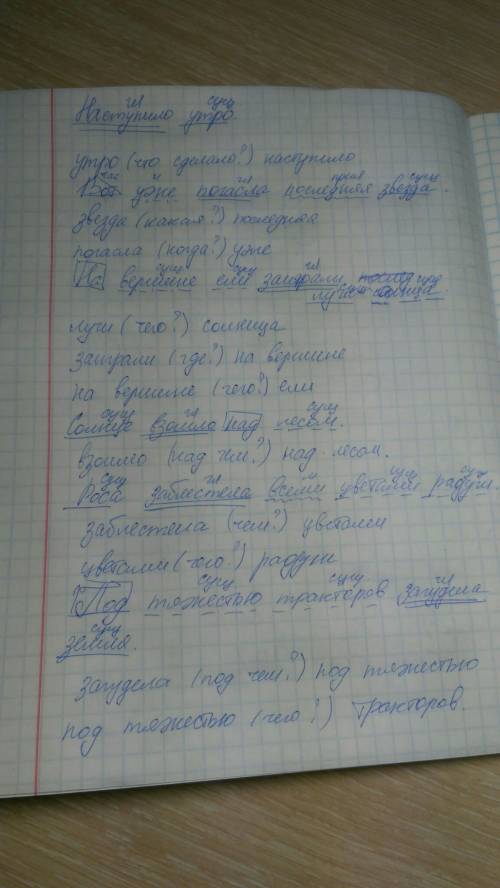 гл сущ
Наступило утро.
утро (что сделало?) наступило
час н гл прил сущ
Вот уже погасла последняя звезда.
звезда (какая?) последняя
погасла (когда?) уже
сущ сущ гл сущ
На вершине ели заиграли
лучи солнца
лучи (чего?) солнца
заиграли (где?) на вершине
на вершине (чего?) ели
сущ гл сущ
Солнце взошло над лесом.
взошло (над чем?) над лесом.
сущ гл сущ сущ
Роса заблестела всеми цветами радуги.
заблестела (чем?) цветами
цветами (чего?) радуги
сущ сущ гл
Под тяжестью тракторов загудела
сущ
земля.
загудела (под чем?) под тяжестью
под тяжестью (чего?) тракторов.